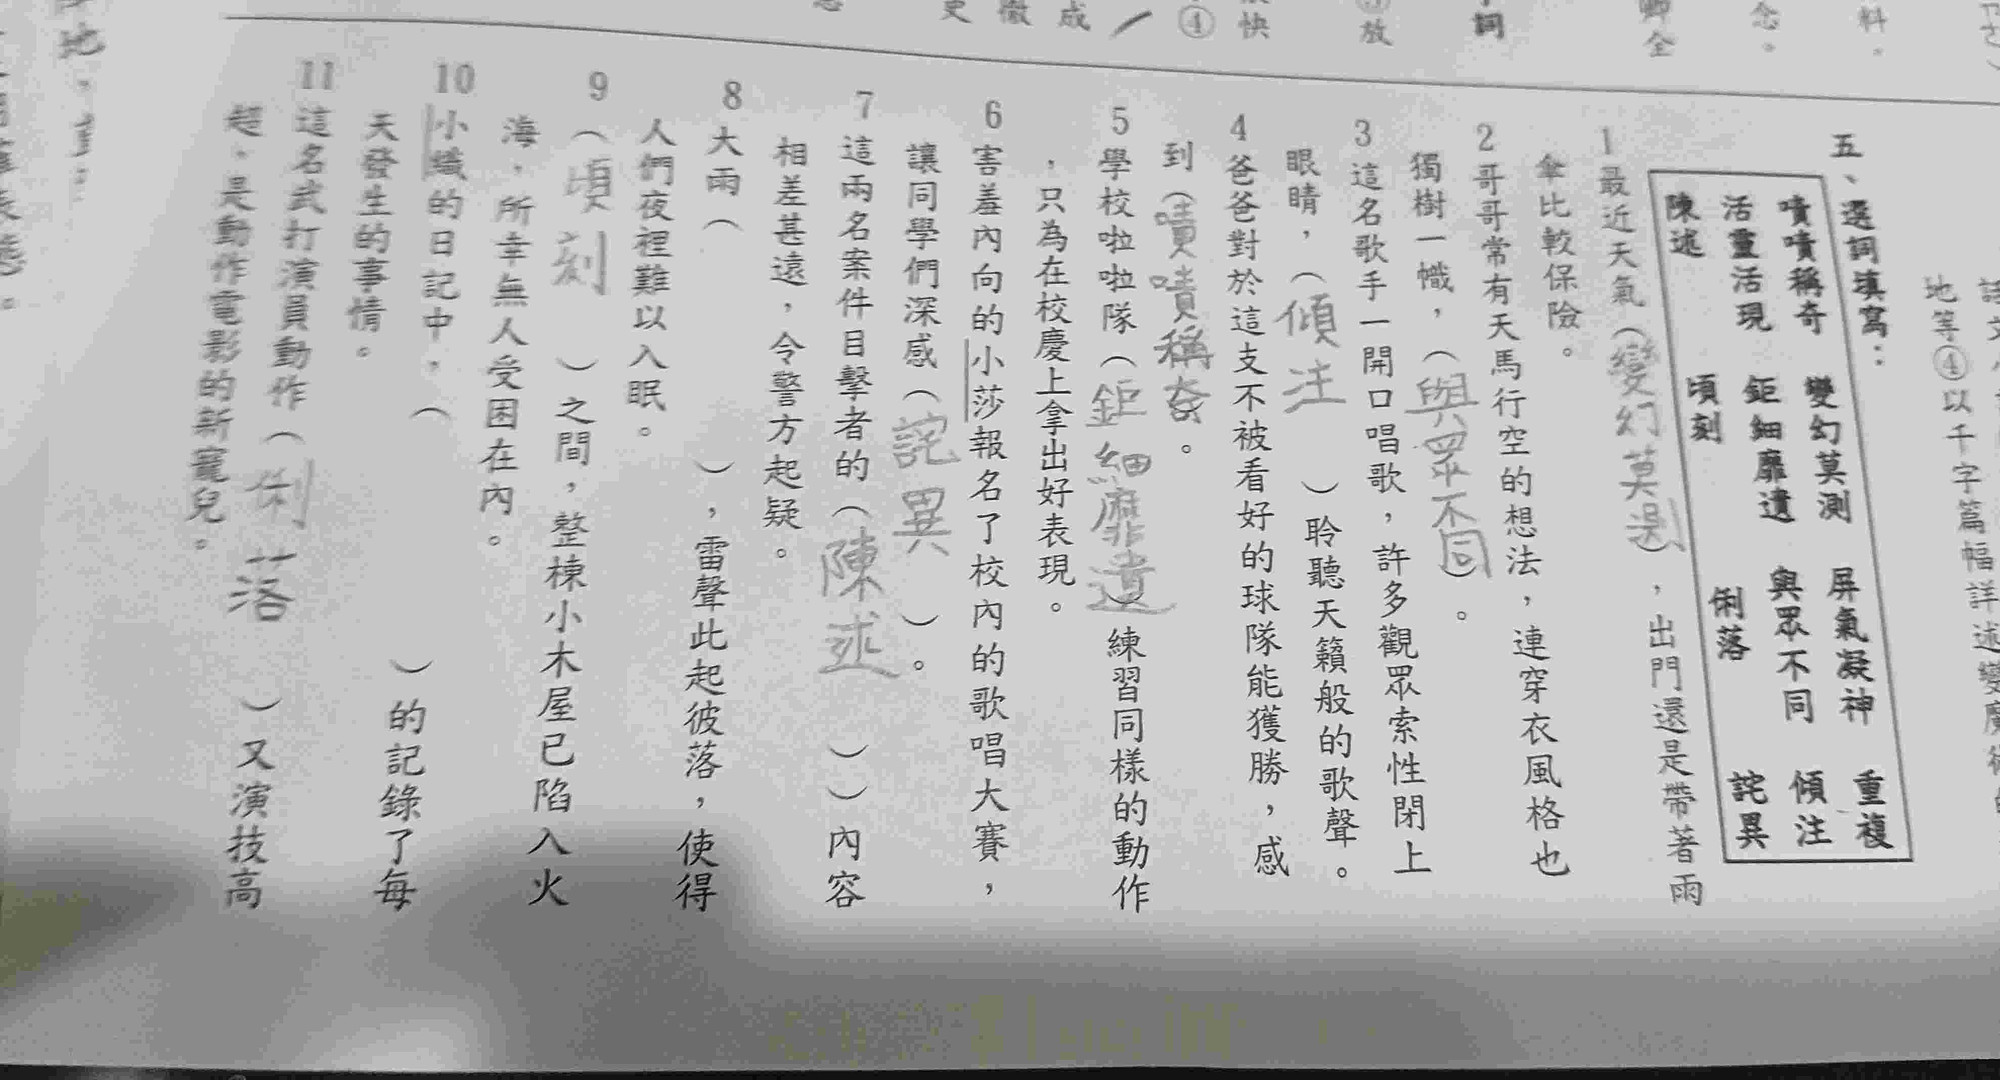 話
地等④以千字篇幅詳述變
五、選詞填寫：
嘖嘖稱奇　變幻莫測　屏氣凝神　重複
活靈活現　鉅細靡遺　與眾不同　傾注
陳述　頃刻　俐落　詫異
1最近天氣（變幻莫測），出門還是帶著雨
傘比較保險。
2哥哥常有天馬行空的想法，連穿衣風格也
獨樹一幟，（與眾不同）。
3這名歌手一開口唱歌，許多觀眾索性閉上
眼睛，（傾注）聆聽天籟般的歌聲。
4爸爸對於這支不被看好的球隊能獲勝，感
到（嘖嘖稱奇。
5學校啦啦隊（鉅細靡遺）練習同樣的動作
，只為在校慶上拿出好表現。
6害羞內向的小莎報名了校內的歌唱大賽，
讓同學們深感（詫異）。
7這兩名案件目擊者的（陳述））內容
相差甚遠，令警方起疑。
8大雨（　），雷聲此起彼落，使得
人們夜裡難以入眠。
9（頃刻）之間，整棟小木屋已陷入火
海，所幸無人受困在內。
10小織的日記中，（　）的記錄了每
天發生的事情。
11這名武打演員動作（俐落）又演技高
超，是動作電影的新寵兒。